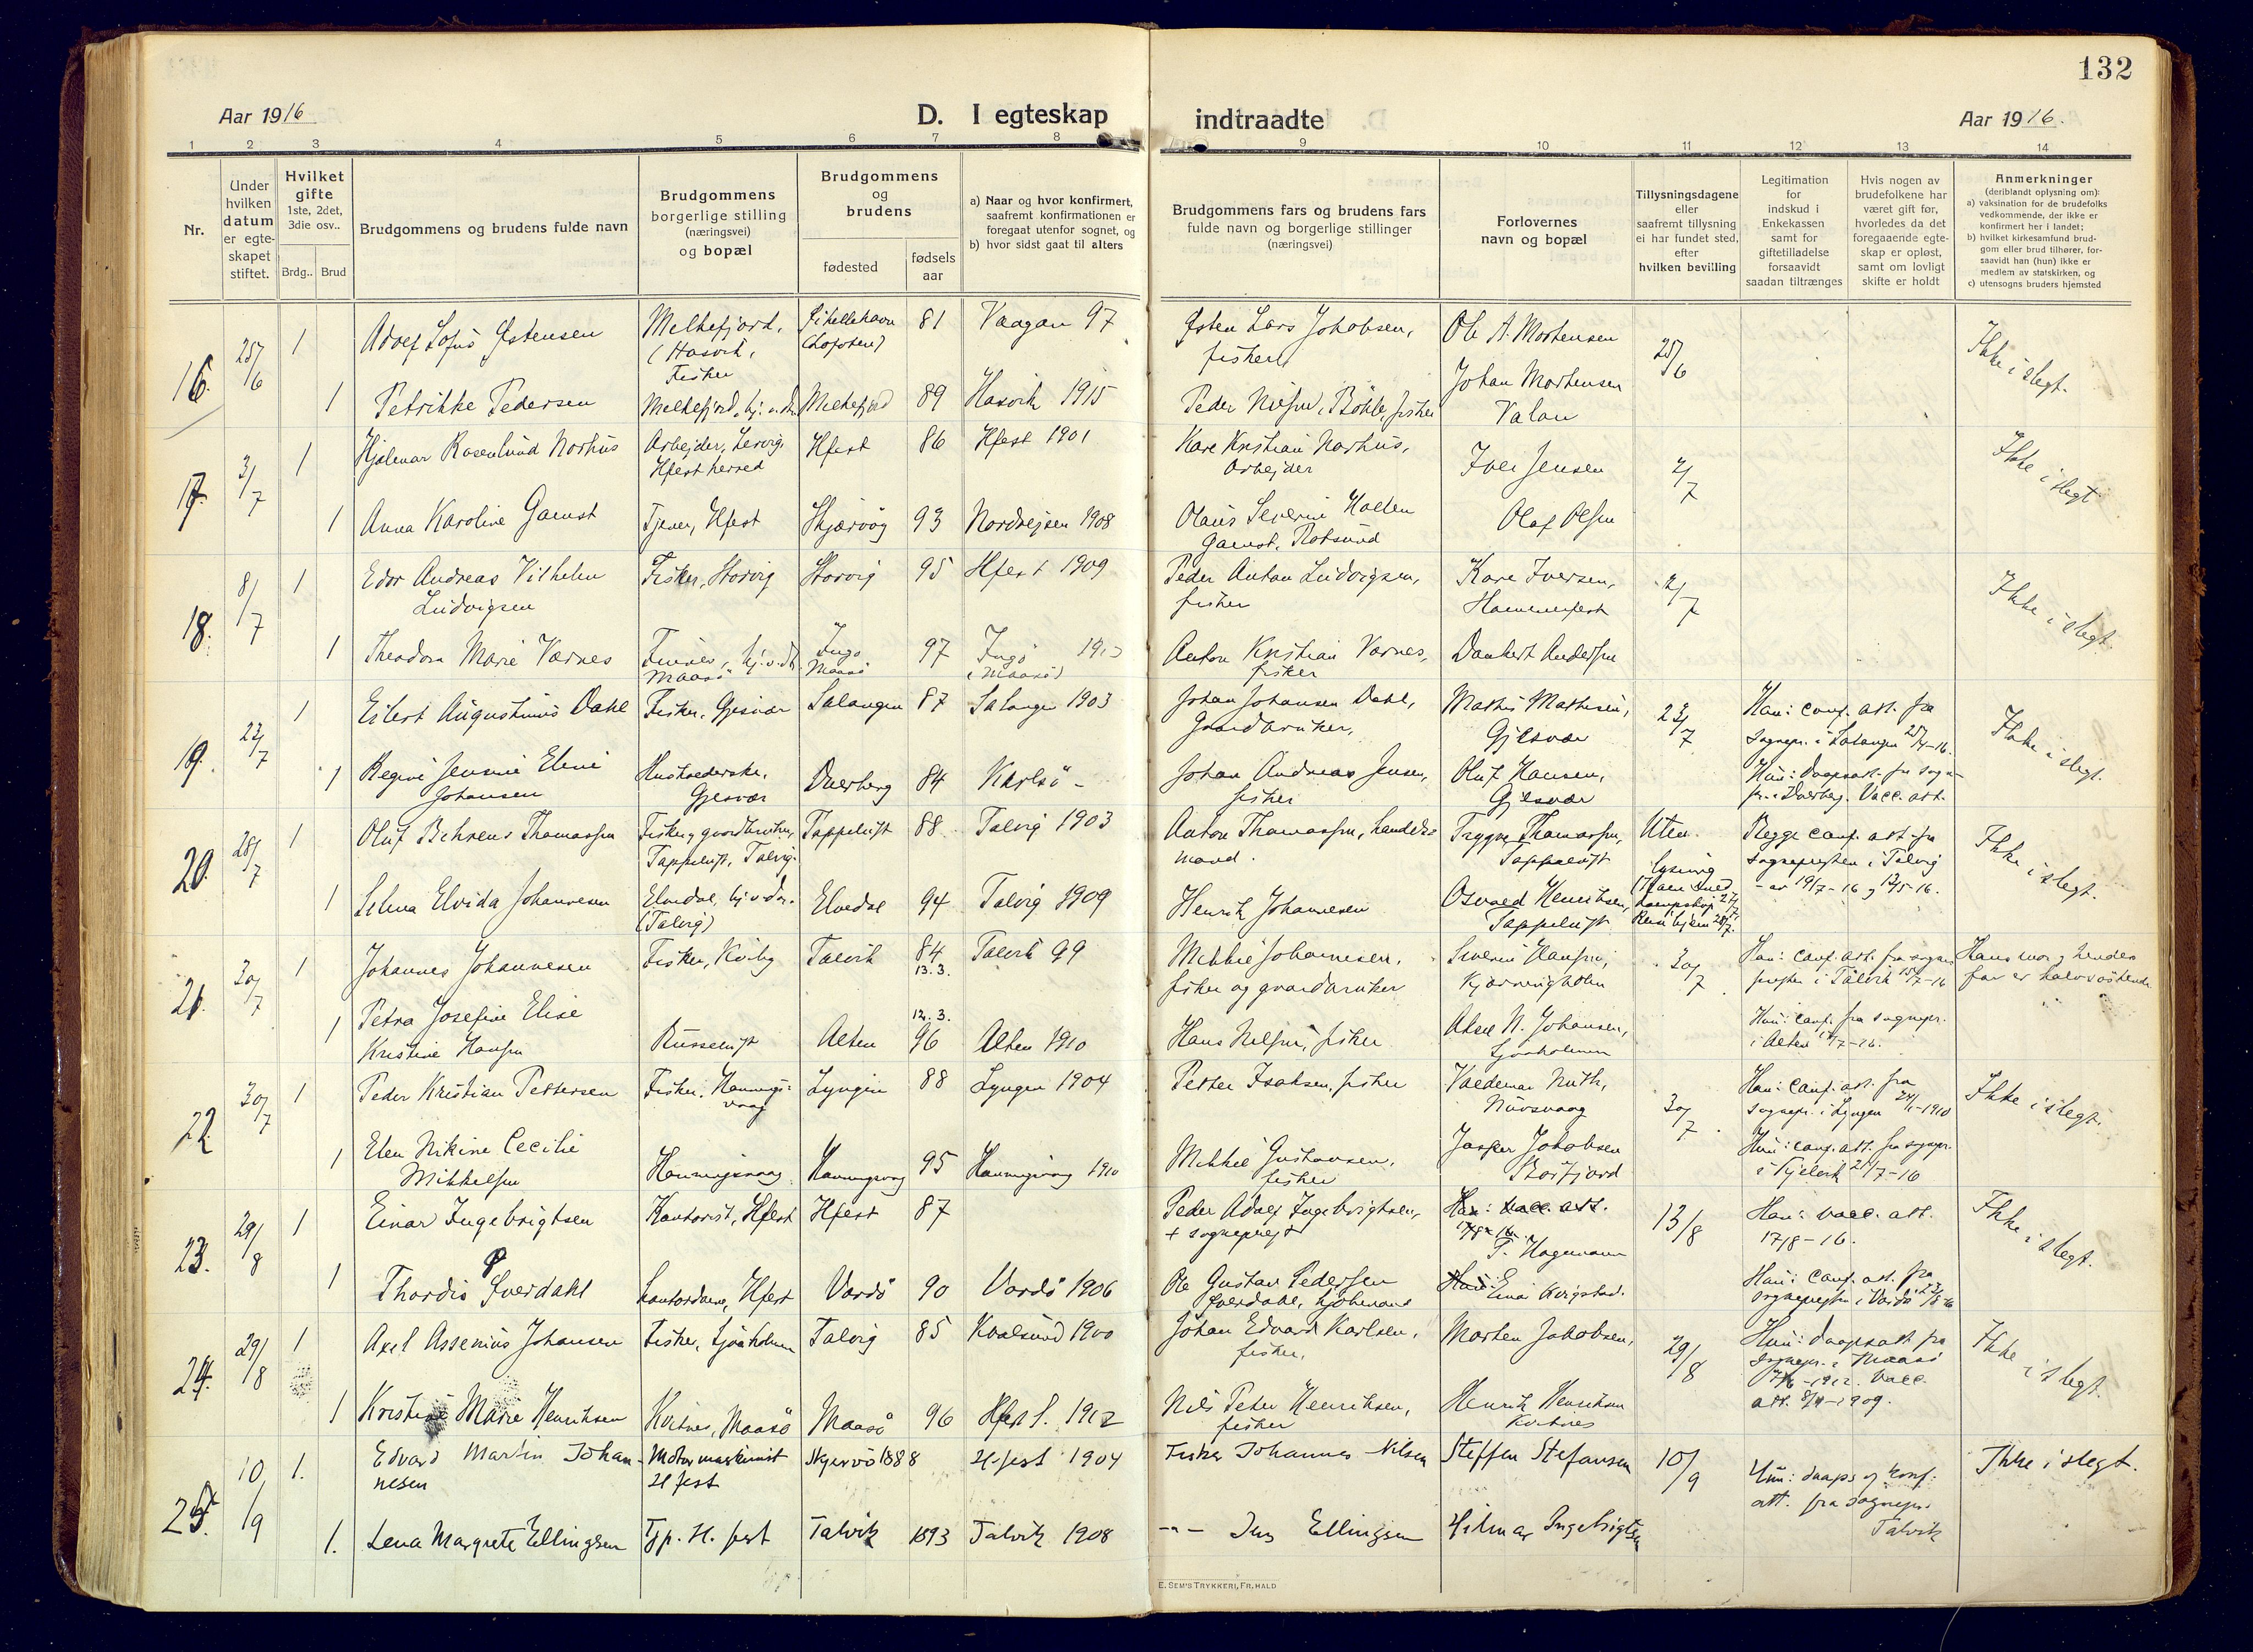 132
Aar 1916
D. I egteskap
indtraadte
Aar 1916.
1 2 3 4 5 6 7 8 9 10 11 12 13 14
Nr.
Under
hvilken
datum
er egte-
skapet
stiftet.
Hvilket
gifte
1ste, 2det,
3die osv..
Brdg.. Brud
Brudgommens og brudens fulde navn
Brudgommens
borgerlige stilling
(næringsvei)
og bopæl
Brudgommens
og
brudens
fødested
fødsels
aar
a) Naar og hvor konfirmert,
saafremt konfirmationen er
foregaat utenfor sognet, og
b) hvor sidst gaat til alters
Brudgommens fars og brudens fars
fulde navn og borgerlige stillinger
(næringsvei)
Forlovernes
navn og bopæl
Tillysningsdagene
eller
saafremt tillysning
ei har fundet sted,
efter
hvilken bevilling
Legitimation
for
indskud i
Enkekassen
samt for
giftetilladelse
forsaavidt
saadan tiltrænges
Hvis nogen av
brudefolkene har
været gift før,
hvorledes da det
foregaaende egte-
skap er opløst,
samt om lovligt
skifte er holdt
Anmerkninger
(deriblandt oplysning om):
a) vaksination for de brudefolks
vedkommende, der ikke er
konfirmert her i landet;
b) hvilket kirkesamfund brud-
gom eller brud tilhører, for-
saavidt han (hun) ikke er
medlem av statskirken, og
c) utensogns bruders hjemsted
16. 25/6 1 Adolf Lofus Østensen
Melkefjord,
(Hasvik,
Fisker
(Lofoten)
81 Vaagan 97
Østen Lars Johobsen,
fisker
Ole A. Mortensen
25/6
Ikke i slegt.
1 Petrikke Pedersen
Melkefjord
89 Hasvik 1915
Peder fisker
Johan Mortensen
Valan
17. 3/7 1 Hjalmar Rosenlund Norhus
Arbejder,
Hfest herred
Hfest 86 Hfest 1901
Kare Kristian Norhus,
Arbejder
Iver Jensen
2/7
Ikke i slegt
1 Anna Karoline Gamst
Tjener, Hfest
Skjærvøy 93 Nordrejsen 1908
Olaus Severin
Gamst, Rotsund
Olaf Olsen
18. 8/7 1 Edor Andreas Vilhelm
Ludvigsen
Fisker, Storvig
Storvig 95 Hfest 1909
Peder Anton Ludvigsen,
fisker
Kare Iversen,
Hammerfest
2/7
Ikke i slegt.
1 Theodora Marie Værnes
Maasø
Ingø
Maasø
97 Ingø
(Maasø)
Anton Kristian Værnes,
fisker
Dankert Andersen
19. 23/7 1 Eilert Augustinus Dahl
Fisker, Gjesvær
Salangen 87 Salangen 1903
Johan Johansen Dahl,
Gaardbruker,
Mathis Mathisen,
Gjesvær
23/7
Han: conf. att. fra
sognepr. i Salangen
Ikke i slegt.
1 Regine Jensine Eline
Johansen
Husholderske,
Gjesvær
Dverberg 84 Karlsö -
Johan Andreas Jensen,
fisker
Oluf Hansen,
Gjesvær
Hun: Daapsatt. fra sogne-
pr. i Dverberg. Vacc. att.
20. 28/7 1 Oluf Behrens Thomassen
Fisker, gaardbruker,
Tappeluft, Talvig.
Tappeluft 88 Talvig 1903
Anton Thomassen, handels-
mand.
Trygve Thomassen,
Tappeluft
Uten
lysning
Begge conf. att. fra
sognepresten i Talvig
- av 19/7-16 og 12/5-16.
Ikke i slegt.
1 Selma Elvida Johannesen
(Talvig)
94 Talvig 1909
Henrik Johannesen
Osvald Henriksen,
Tappeluft
21. 30/7 1 Johannes Johannesen
Fisker, Kviby
Talvik 84
13.3.
Talvik 99
Mikkel Johannesen,
fisker og gaardbruker
Severin Hansen,
30/7
Han: conf. att. fra sogne-
presten i Talvik 15/7-16
Hans mor og hendes
far er halvsøskende
1 Petra Josefine Elise
Kristine Hansen
Russeluft
Alten 12.3.
96
Alten 1910
Hans Nilsen, fisker
Aksel N. Johansen,
Sjøaholmen
Hun: conf. fra sognepr.
i Alten
22. 30/7 1 Peder Kristian Pettersen
Fisker, Honnings-
vaag
Lyngen 88 Lyngen 1904
Petter Isaksen, fisker
Valdemar Nuth,
30/7
Han: conf. att. fra
sognepr. i Lyngen 24/1-1910
Ikke i slegt.
1 Elen Nikine Cecilie
Mikkelsen
Honningsvaag
Honningsvaag 95 Honningsvaag 1910
Mikkel Gustavsen,
fisker
Jasper Jakobsen
Hun: conf. att. fra sognepr.
i Kjelvik 21/7-16
23. 29/8 1 Einar Ingebrigtsen
Kontorist, Hfest
Hfest 87
Peder Adolf Ingebrigtsen,
+ sogneprest
Han: vacc. att.
17/8-16.
T. Hagemann
13/8
Han: vacc. att.
17/8-16.
Ikke i slegt.
1 Thordis Sverdahl
Kontordame, Hfest
Vardö 90 Vardö 1906
Ole Gustav Pedersen
Sverdahl, kjøbmand
Einar Kvigstad.
Hun: conf. att. fra
sognepresten i Vardö
24. 29/8 1 Axel Assenius Johansen
Fisker, Sjøaholmen
Talvig 85 Kvalsund 1900
Johan Edvard Karlsen,
fisker,
Morten Jakobsen,
29/8
Hun: daapsatt. fra
sognepr. i Maasø
-1912. Vacc.
att. 8/11-1909.
Ikke i slegt.
1 Kristine Marie Henriksen
Kvitnes, Maasö
Maasö 96 Hfest S. 1912
Nils Peter Henriksen,
fisker
Henrik Henriksen
Kvitnes
25. 10/9 1. Edvard Martin Johan-
nesen
Motormaskinist
H fest
Skjervö 1888 H-fest 1904
Fisker Johannes Nilsen
Steffen Stefansen
10/9
Hun: daaps og konf:
att. fra sognepr.
Talvik
Ikke i slegt.
1. Lena Margrete Ellingsen
Tjp. H. fest
Talvik 1893 Talvik 1908
-"- Jens Ellingsen
Hilmar Ingebrigtsen
E. SEM'S TRYKKERI, FR.HALD